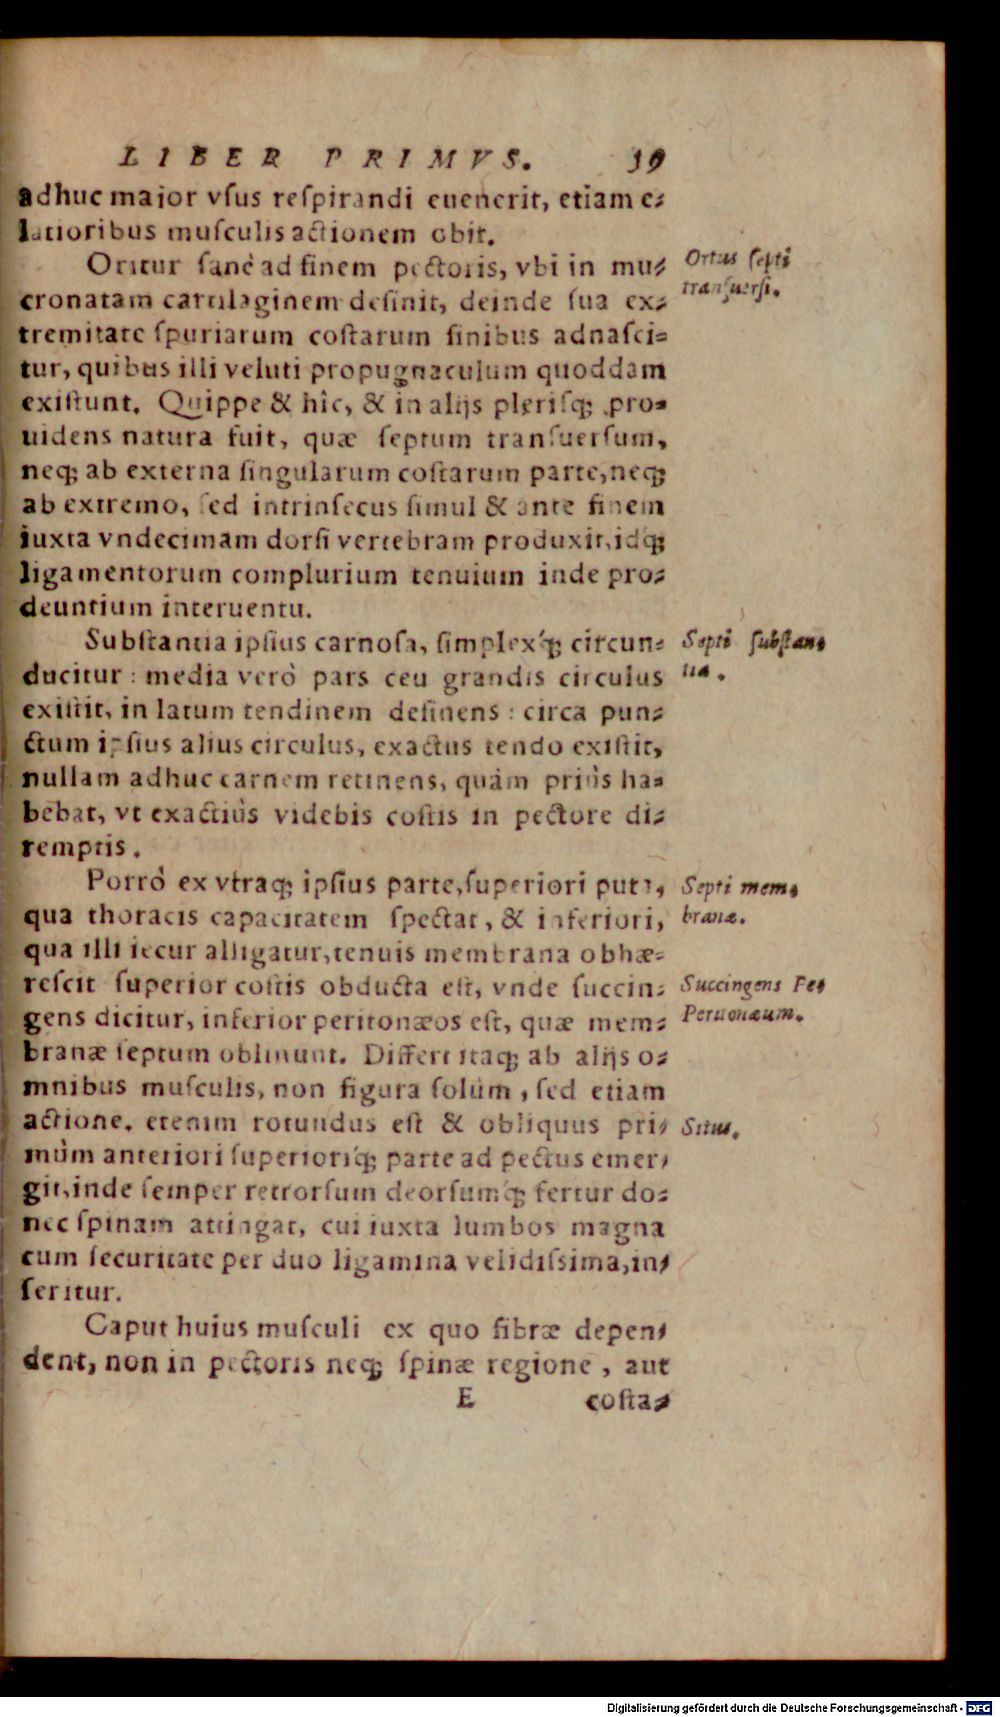 LIBER PRIMVS. 39
adhuc maior vſus reſpirandi euenerit, etiam e-
latioribus muſculis actionem obit.
Oritur ſanè ad finem pectoris, vbi in mu-
Ortus ſepti
cronatam cartilaginem deſinit, deinde ſua ex-
tranſuerſi.
tremitate ſpuriarum coſtarum finibus adnaſci-
tur, quibus illi veluti propugnaculum quoddam
exiſtunt. Quippe & hîc, & in alijs pleriſq; pro-
uidens natura fuit, quæ ſeptum tranſuerſum,
neq; ab externa ſingularum coſtarum parte, neq;
ab extremo, ſed intrinſecus ſimul & ante finem
iuxta vndecimam dorſi vertebram produxit, idq́;
ligamentorum complurium tenuium inde pro-
deuntium interuentu.
Subſtantia ipſius carnoſa, ſimplexq́; circun-
Septi ſubſtan-
ducitur : media verò pars ceu grandis circulus
tia.
exiſtit, in latum tendinem deſinens : circa pun-
ctum ipſius alius circulus, exactus tendo exiſtit,
nullam adhuc carnem retinens, quàm priùs ha-
bebat, vt exactiùs videbis coſtis in pectore di-
remptis.
Porrò ex vtraq; ipſius parte, ſuperiori puta,
Septi mem-
qua thoracis capacitatem ſpectat, & inferiori,
branæ.
qua illi iecur alligatur, tenuis membrana obhæ-
reſcit ſuperior coſtis obducta eſt, vnde ſuccin-
Succingens Pe-
gens dicitur, inferior peritonæos eſt, quæ mem-
Peritonæum.
branæ ſeptum oblinunt. Differt itaq; ab alijs o-
mnibus muſculis, non figura ſolùm, ſed etiam
actione. etenim rotundus eſt & obliquus pri-
Situs.
mùm anteriori ſuperioriq́; parte ad pectus emer-
git, inde ſemper retrorſum deorſumq́; fertur do-
nec ſpinam attingat, cui iuxta lumbos magna
cum ſecuritate per duo ligamina velidiſsima, in-
ſeritur.
Caput huius muſculi ex quo fibræ depen-
dent, non in pectoris neq; ſpinæ regione, aut
E coſta-
Digitalisierung gefördert durch die Deutsche Forschungsgemeinschaft - DFG